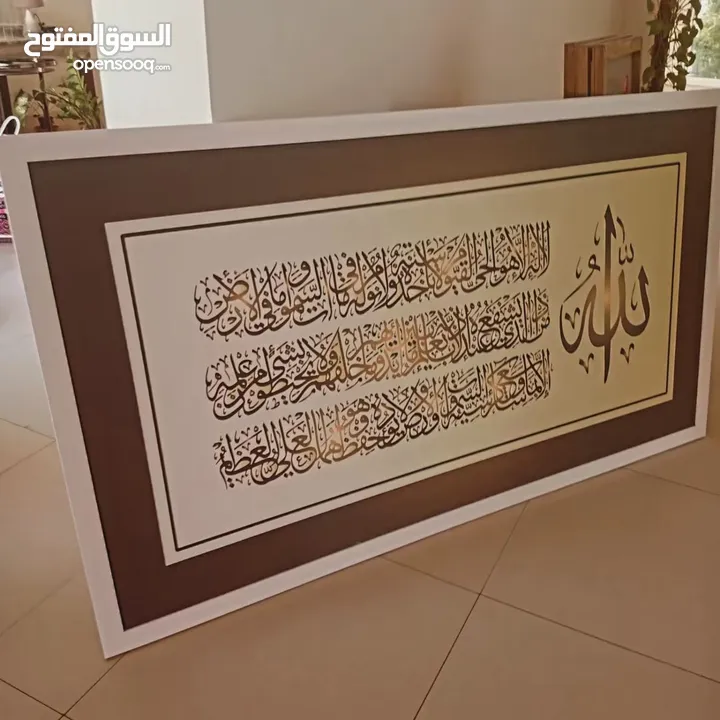 السوق المفتوح
opensooq.com
الله لا إله إلا هو الحي القيوم لا تأخذه سنة ولا نوم له ما في السموات وما في الأرض
من ذا الذي يشفع عنده إلا بإذنه يعلم ما بين أيديهم وما خلفهم ولا يحيطون بشيء من علمه
إلا بما شاء وسع كرسيه السموات والأرض ولا يؤده حفظهما وهو العلي العظيم
الله